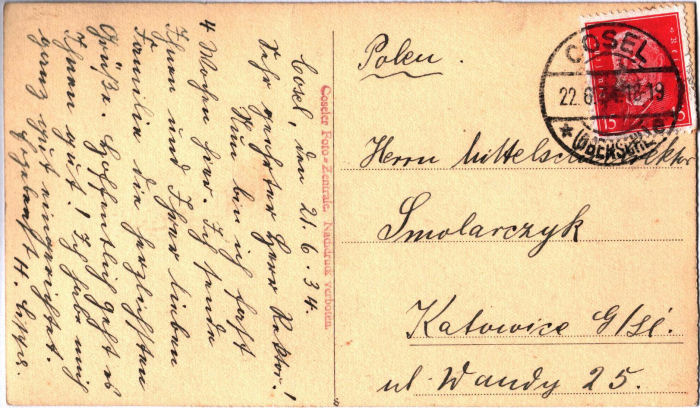 Cosel, den 21.6.34.
Sehr geehrter Herr Rektor!
Nun bin ich fast
4 Wochen hier. Ich sende
Ihnen und Ihrer lieben
Familie die herzlichsten
Grüße. Hoffentlich geht es
Ihnen gut! Ich habe mich
ganz gut eingerichtet.
H.
Coseler Foto-Zentrale. Nachdruck verboten.
Polen.
COSEL
22.6.34.18-19
(OBERSCHL)
15
Herrn Mittelschulrektor
Smolarczyk
Katowice G/Śl.
ul. Wandy 25.